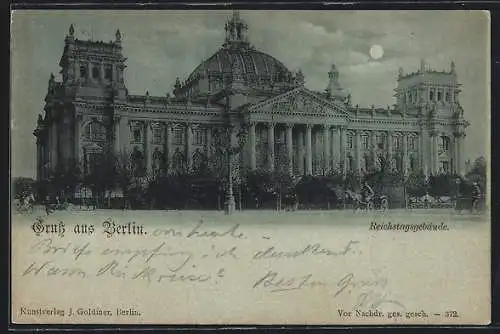 Gruß aus Berlin.
Reichstagsgebäude.
Brief empfing ich dankend.
Wann
Besten Gruß
Kunstverlag J. Goldiner, Berlin.
Vor Nachdr. ges. gesch. — 372.